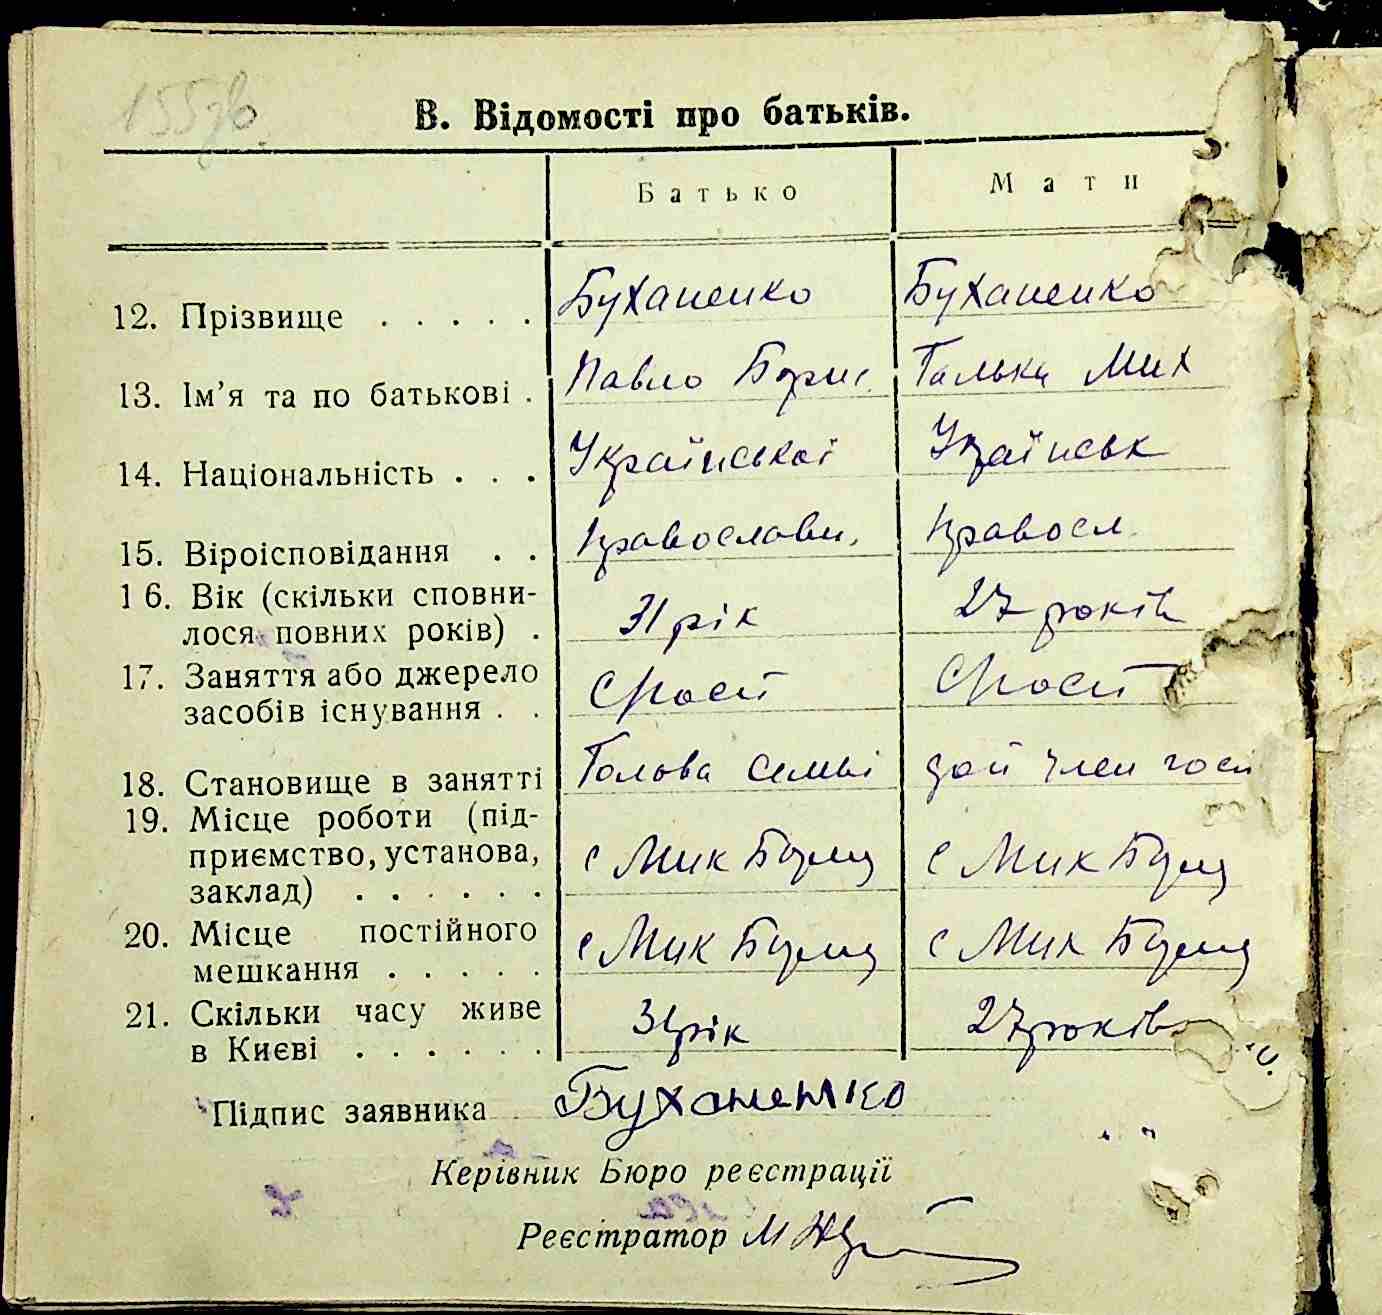 155 зв
В. Відомості про батьків.
Батько Мати
12. Прізвище . . . . . Буханенко Буханенко
13. Ім'я та по батькові . Павло Борис. Галька Мих
14. Національність . . . Української Украінськ
15. Віроісповідання . . Православн. Правосл.
16. Вік (скільки сповни-
лося повних років) . 31 рік 27 років
17. Заняття або джерело
засобів існування . .
18. Становище в занятті Голова семьі член
19. Місце роботи (під-
приємство, установа,
заклад) . . . . . . с Мик Борщ с Мик Борщ
20. Місце постійного
мешкання . . . . . с Мик Борщ с Мик Борщ
21. Скільки часу живе
в Києві . . . . . . 31 рік 27 років
Підпис заявника Буханенко
Керівник Бюро реєстрації
Реєстратор